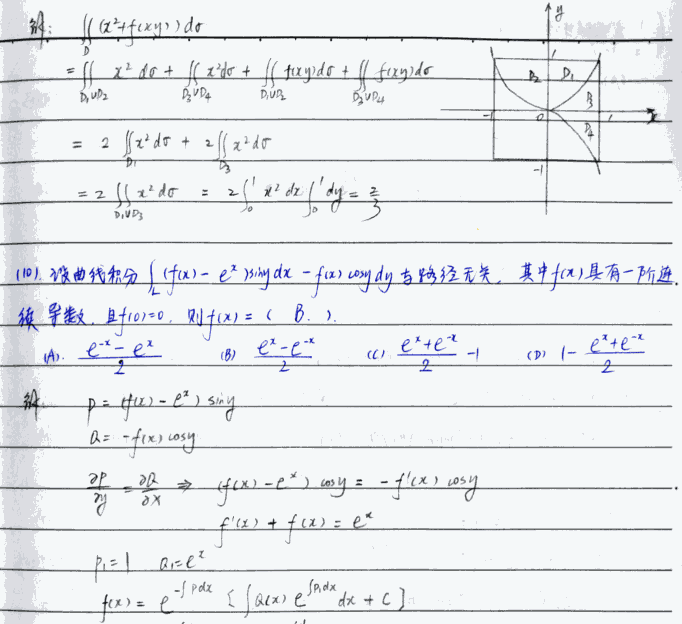 解: ∬_D (x²+f(xy)) dσ
= ∬_{D₁∪D₂} x² dσ + ∬_{D₃∪D₄} x² dσ + ∬_{D₁∪D₂} f(xy) dσ + ∬_{D₃∪D₄} f(xy) dσ
= 2 ∬_{D₁} x² dσ + 2 ∬_{D₃} x² dσ
= 2 ∬_{D₁∪D₃} x² dσ = 2 ∫₀¹ x² dx ∫₀¹ dy = 2/3
y
1
D₂ D₁
D₃
-1 0 1 x
D₄
-1
(10). 设曲线积分 ∫_L (f(x) - eˣ) siny dx - f(x) cosy dy 与路径无关, 其中f(x)具有一阶连
续导数, 且f(0)=0, 则f(x) = ( B. ).
(A). (e⁻ˣ - eˣ)/2 (B) (eˣ - e⁻ˣ)/2 (C) (eˣ + e⁻ˣ)/2 - 1 (D) 1 - (eˣ + e⁻ˣ)/2
解. P = (f(x) - eˣ) siny
Q = - f(x) cosy
∂P/∂y = ∂Q/∂x ⇒ (f(x) - eˣ) cosy = - f'(x) cosy
f'(x) + f(x) = eˣ
P₁ = 1 Q₁ = eˣ
f(x) = e^{-∫Pdx} [ ∫ Q(x) e^{∫P₁dx} dx + C ]